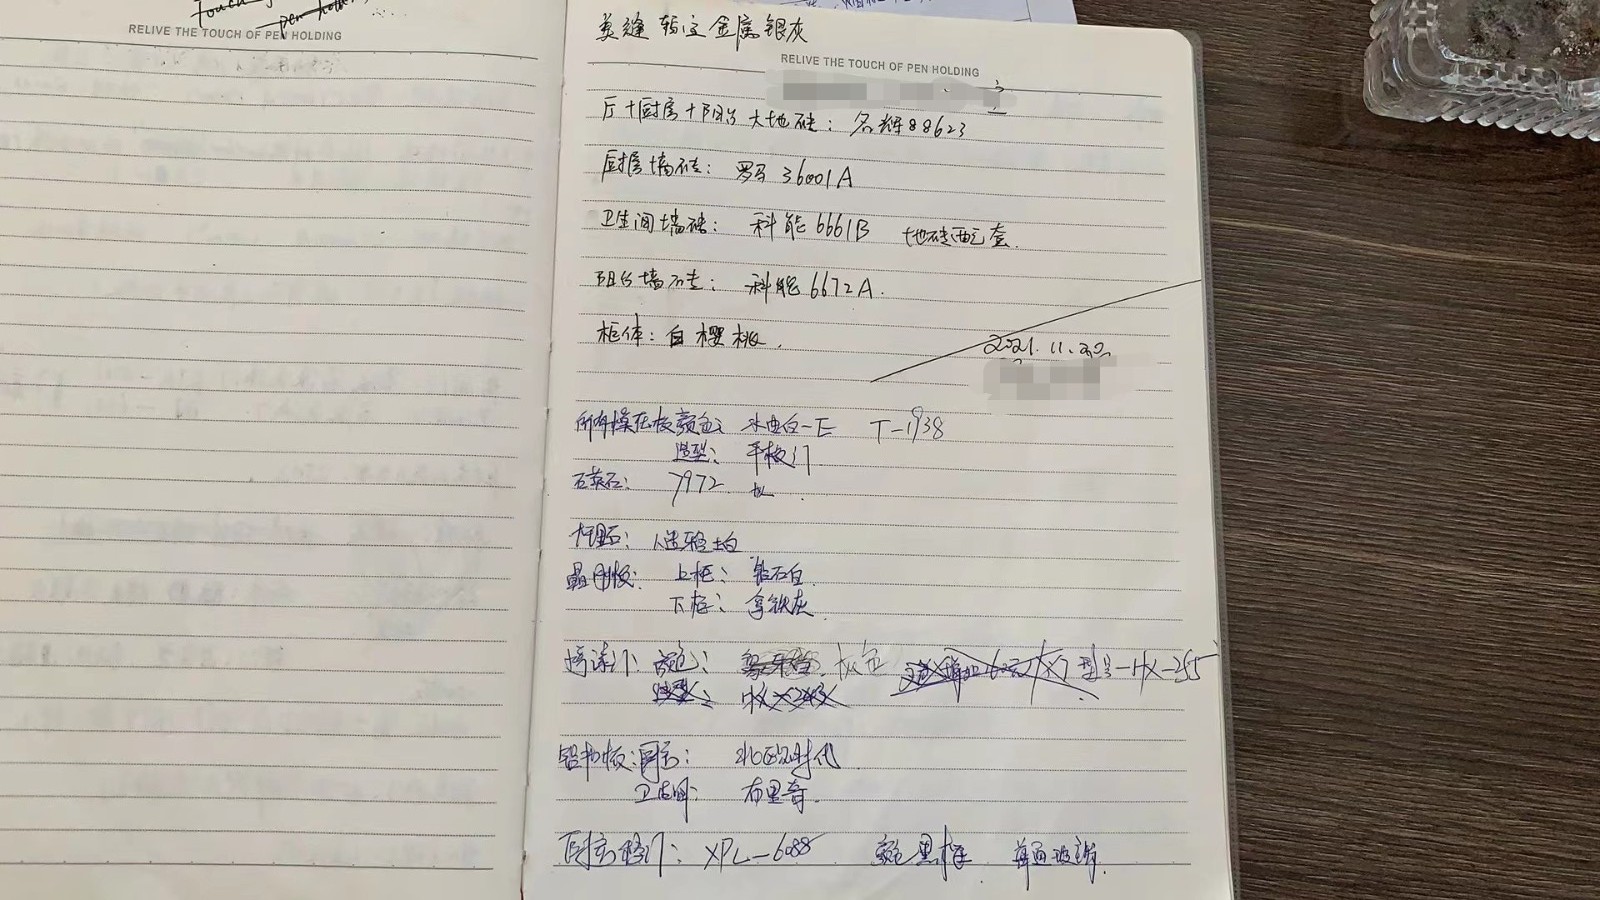 Touch
pen holding
RELIVE THE TOUCH OF PEN HOLDING
美缝 暂定金属银灰
RELIVE THE TOUCH OF PEN HOLDING
厅+厨房+阳台大地砖：名辉88623
厨房墙砖：罗马36001A
卫生间墙砖：科能6661B 地砖配套.
阳台墙砖：科能6672A.
柜体：白樱桃.
2021.11.20
所有操在板颜色：水曲白一E T-1938
造型：平板门
石英石：7972
大理石：人造雅士白
晶钢板：上柜：钻石白.
下柜：拿铁灰
烤漆门：颜色：灰色 型号-HX-255
造型：
铝扣板：厨房：北欧时代
卫生间：布里奇.
厨房移门：XPL-6088 颜色黑框. 普通玻璃.